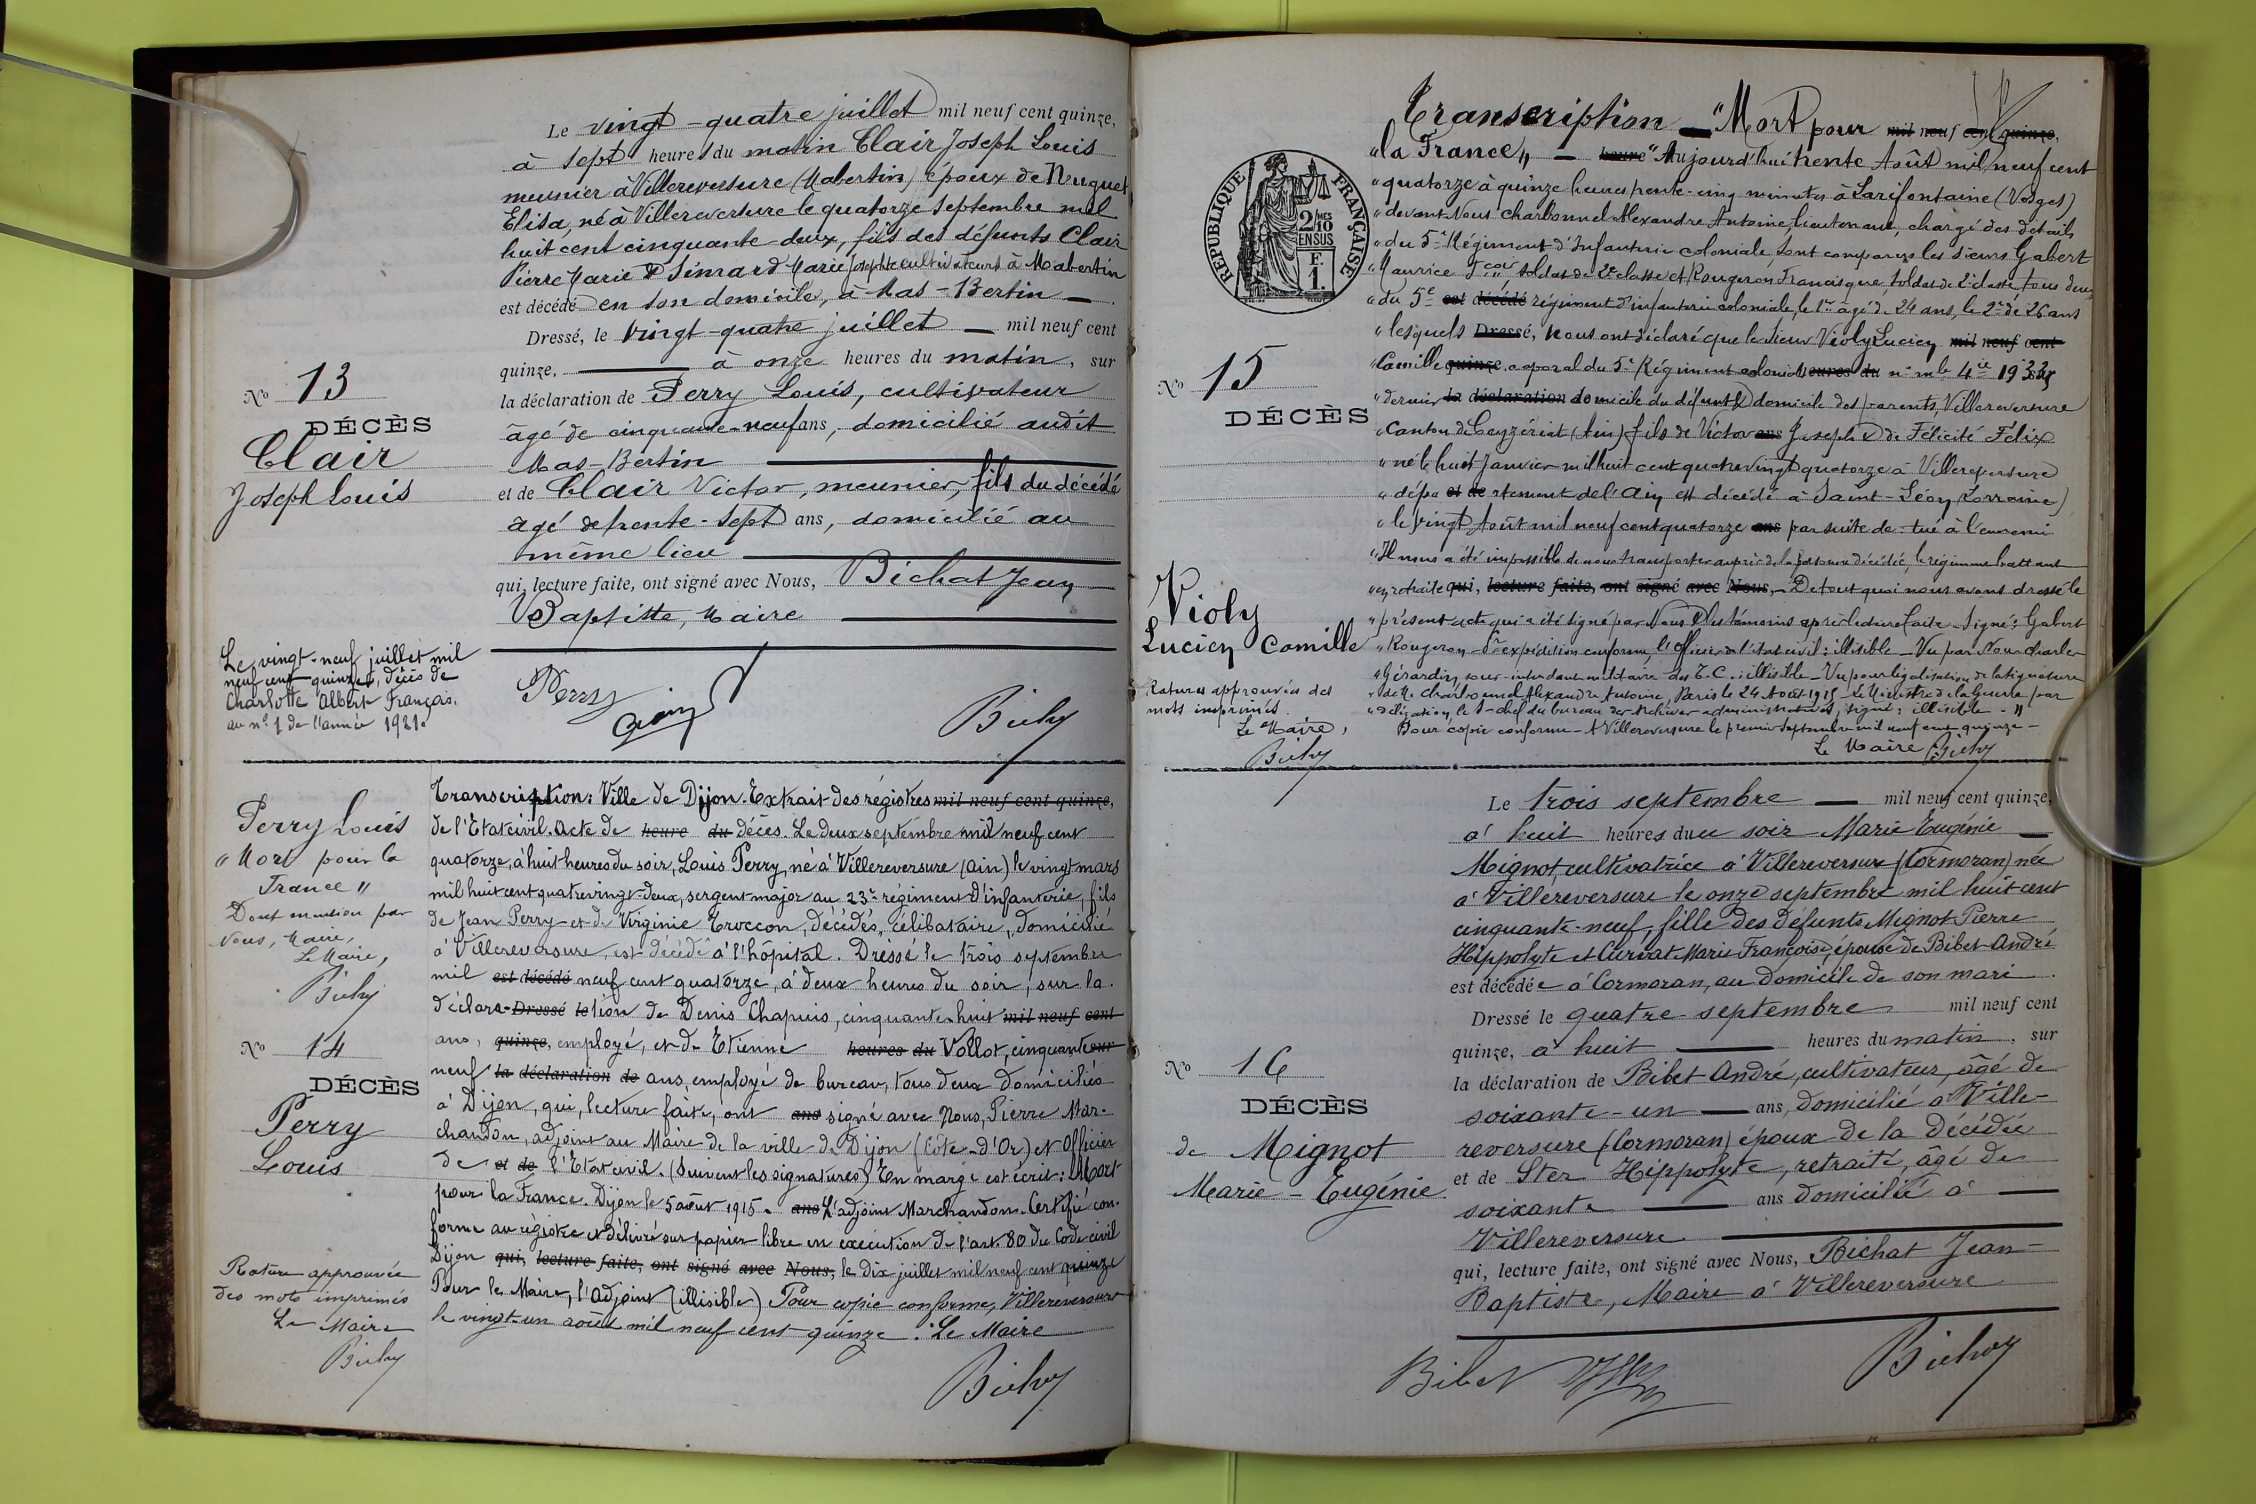 Le vingt-quatre juillet mil neuf cent quinze,
à sept heures du matin Clair Joseph Louis
meunier à Villereversure (Mabertin) époux de Nuguet
Elisa, né à Villereversure le quatorze septembre mil
huit cent cinquante deux, fils des défunts Clair
Pierre Marie & Simard Marie Josephte cultivateurs à Mabertin
est décédé en son domicile, à Mas-Bertin
Dressé, le vingt-quatre juillet mil neuf cent
quinze, à onze heures du matin, sur
la déclaration de Perry Louis, cultivateur
âgé de cinquante-neuf ans, domicilié audit
Mas-Bertin
et de Clair Victor, meunier, fils du décédé
âgé de trente-sept ans, domicilié au
même lieu
qui, lecture faite, ont signé avec Nous, Bichat Jean
Baptiste, Maire
No 13
DÉCÈS
Clair
Joseph Louis
Le vingt-neuf juillet mil
neuf cent quinze, décès de
Charlotte Albert François.
au n° 1 de l'année 1921.
Perry
Clair
Bichat
Perry Louis
"Mort pour la
France"
Dont mention par
Nous, Maire,
Le Maire,
Bichat
No 14
DÉCÈS
Perry
Louis
Rature approuvée
des mots imprimés
Le Maire
Bichat
Transcription: Ville de Dijon. Extrait des régistres mil neuf cent quinze,
de l'Etat civil. Acte de heure du décès. Le deux septembre mil neuf cent
quatorze, à huit heures du soir, Louis Perry, né à Villereversure (Ain) le vingt mars
mil huit cent quatrevingt-deux, sergent major au 23e régiment d'infanterie, fils
de Jean Perry et de Virginie Troccon, décédés, célibataire, domicilié
à Villereversure, est décédé à l'hôpital. Dressé le trois septembre
mil est décédé neuf cent quatorze, à deux heures du soir, sur la
déclara-Dressé le tion de Denis Chapuis, cinquante-huit mil neuf cent
ans, quinze, employé, et de Etienne heures du Vollot, cinquante sur
neuf la déclaration de ans, employé de bureau, tous deux domiciliés
à Dijon, qui, lecture faite, ont ans signé avec Nous, Pierre Mar-
chandon, adjoint au Maire de la ville de Dijon (Côte-d'Or) et Officier
de et de l'Etat civil. (Suivent les signatures) En marge est écrit: Mort
pour la France. Dijon le 5 août 1915. ans L'adjoint Marchandon. Certifié con-
forme au régistre et délivré sur papier libre en exécution de l'art. 80 du Code civil
Dijon qui, lecture faite, ont signé avec Nous, le dix juillet mil neuf cent quinze
Pour le Maire, l'adjoint (illisible) Pour copie conforme, Villereversure
le vingt-un août mil neuf cent quinze. Le Maire
Bichat
RÉPUBLIQUE FRANÇAISE
2/10 MES
EN SUS
F.
1.
No 15
DÉCÈS
Violy
Lucien Camille
Ratures approuvées des
mots imprimés.
Le Maire,
Bichat
Transcription "Mort pour mil neuf cent quinze,
"la France" heure "Aujourd'hui trente Août mil neuf cent
"quatorze à quinze heures trente-cinq minutes à Larifontaine (Vosges)
"devant Nous Charbonnel Alexandre Antoine, lieutenant, chargé des détails
"du 5e Régiment d'Infanterie coloniale, sont comparus les sieurs Gabert
"Maurice soldat de 2e classe et Rougeron Francisque, soldat de 2e classe tous deux
"du 5e est décédé régiment d'infanterie coloniale, le 1er âgé de 24 ans, le 2e de 26 ans
"lesquels Dressé, nous ont déclaré que le sieur Violy Lucien mil neuf cent
"Camille quinze, caporal du 5e Régiment colonial heures du n° mle 4
"dernier la déclaration de domicile du défunt & domicile des parents, Villereversure
"Canton de Ceyzériat (Ain) fils de Victor ans Joseph & de Félicité Félix
"né le huit Janvier mil huit cent quatre vingt quatorze à Villereversure
"dépa et de rtement de l'Ain est décédé à Saint-Léon (Lorraine)
"le vingt Août mil neuf cent quatorze ans par suite de : tué à l'ennemi
"Il nous a été impossible de nous transporter auprès de la personne décédée, le régiment battant
"en retraite qui, lecture faite, ont signé avec Nous, - De tout quoi nous avons dressé le
"présent acte qui a été signé par Nous & les témoins après lecture faite. Signé: Gabert
"Rougeron - Pr expédition conforme, l'officier de l'état civil: illisible - Vu par Nous Charles
"Gérardin, sous-intendant militaire des T.C. illisible - Vu pour légalisation de la signature
"de M. Charbonnel Alexandre Antoine, Paris le 24 Août 1915 - Le Ministre de la Guerre par
"délégation, le s-chef du bureau des Archives administratives, signé: illisible - "
Pour copie conforme - A Villereversure le premier Septembre mil neuf cent quinze -
Le Maire Bichat
No 16
DÉCÈS
de Mignot
Marie-Eugénie
Le trois septembre mil neuf cent quinze,
à huit heures du soir Marie Eugénie
Mignot, cultivatrice à Villereversure (Cormoran) née
à Villereversure le onze septembre mil huit cent
cinquante-neuf, fille des défunts Mignot Pierre
Hippolyte et Curvat Marie Françoise, épouse de Bibet André
est décédée à Cormoran, au domicile de son mari
Dressé le quatre septembre mil neuf cent
quinze, à huit heures du matin, sur
la déclaration de Bibet André, cultivateur, âgé de
soixante-un ans, domicilié à Ville-
reversure (Cormoran) époux de la décédée
et de Ster Hippolyte, retraité, âgé de
soixante ans domicilié à
Villereversure
qui, lecture faite, ont signé avec Nous, Bichat Jean-
Baptiste, Maire à Villereversure
Bibet
Bichat